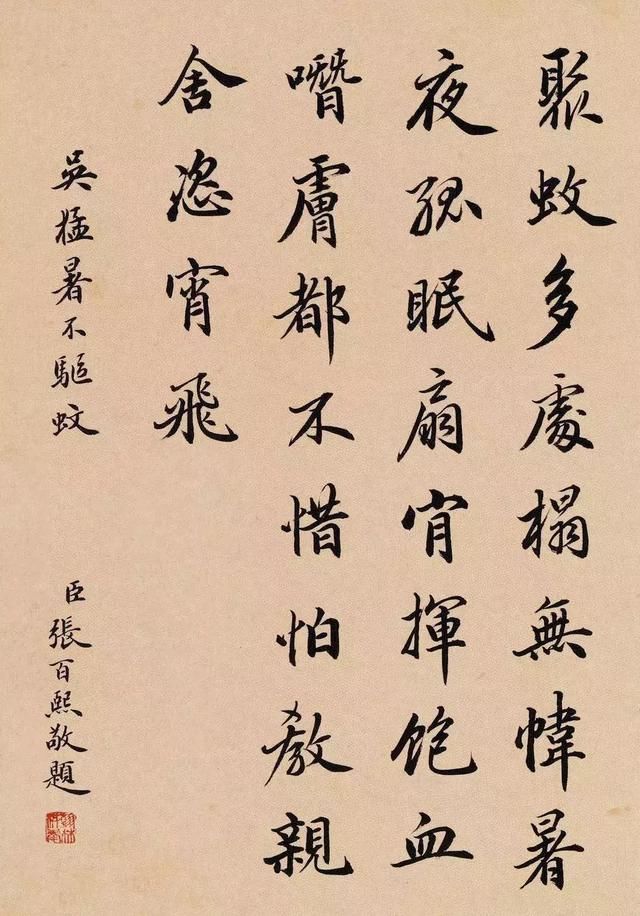 聚蚊多處榻無幃暑
夜孤眠扇肎揮飽血
噆膚都不惜怕教親
舍恣宵飛
吳猛暑不驅蚊
臣張百熙敬題